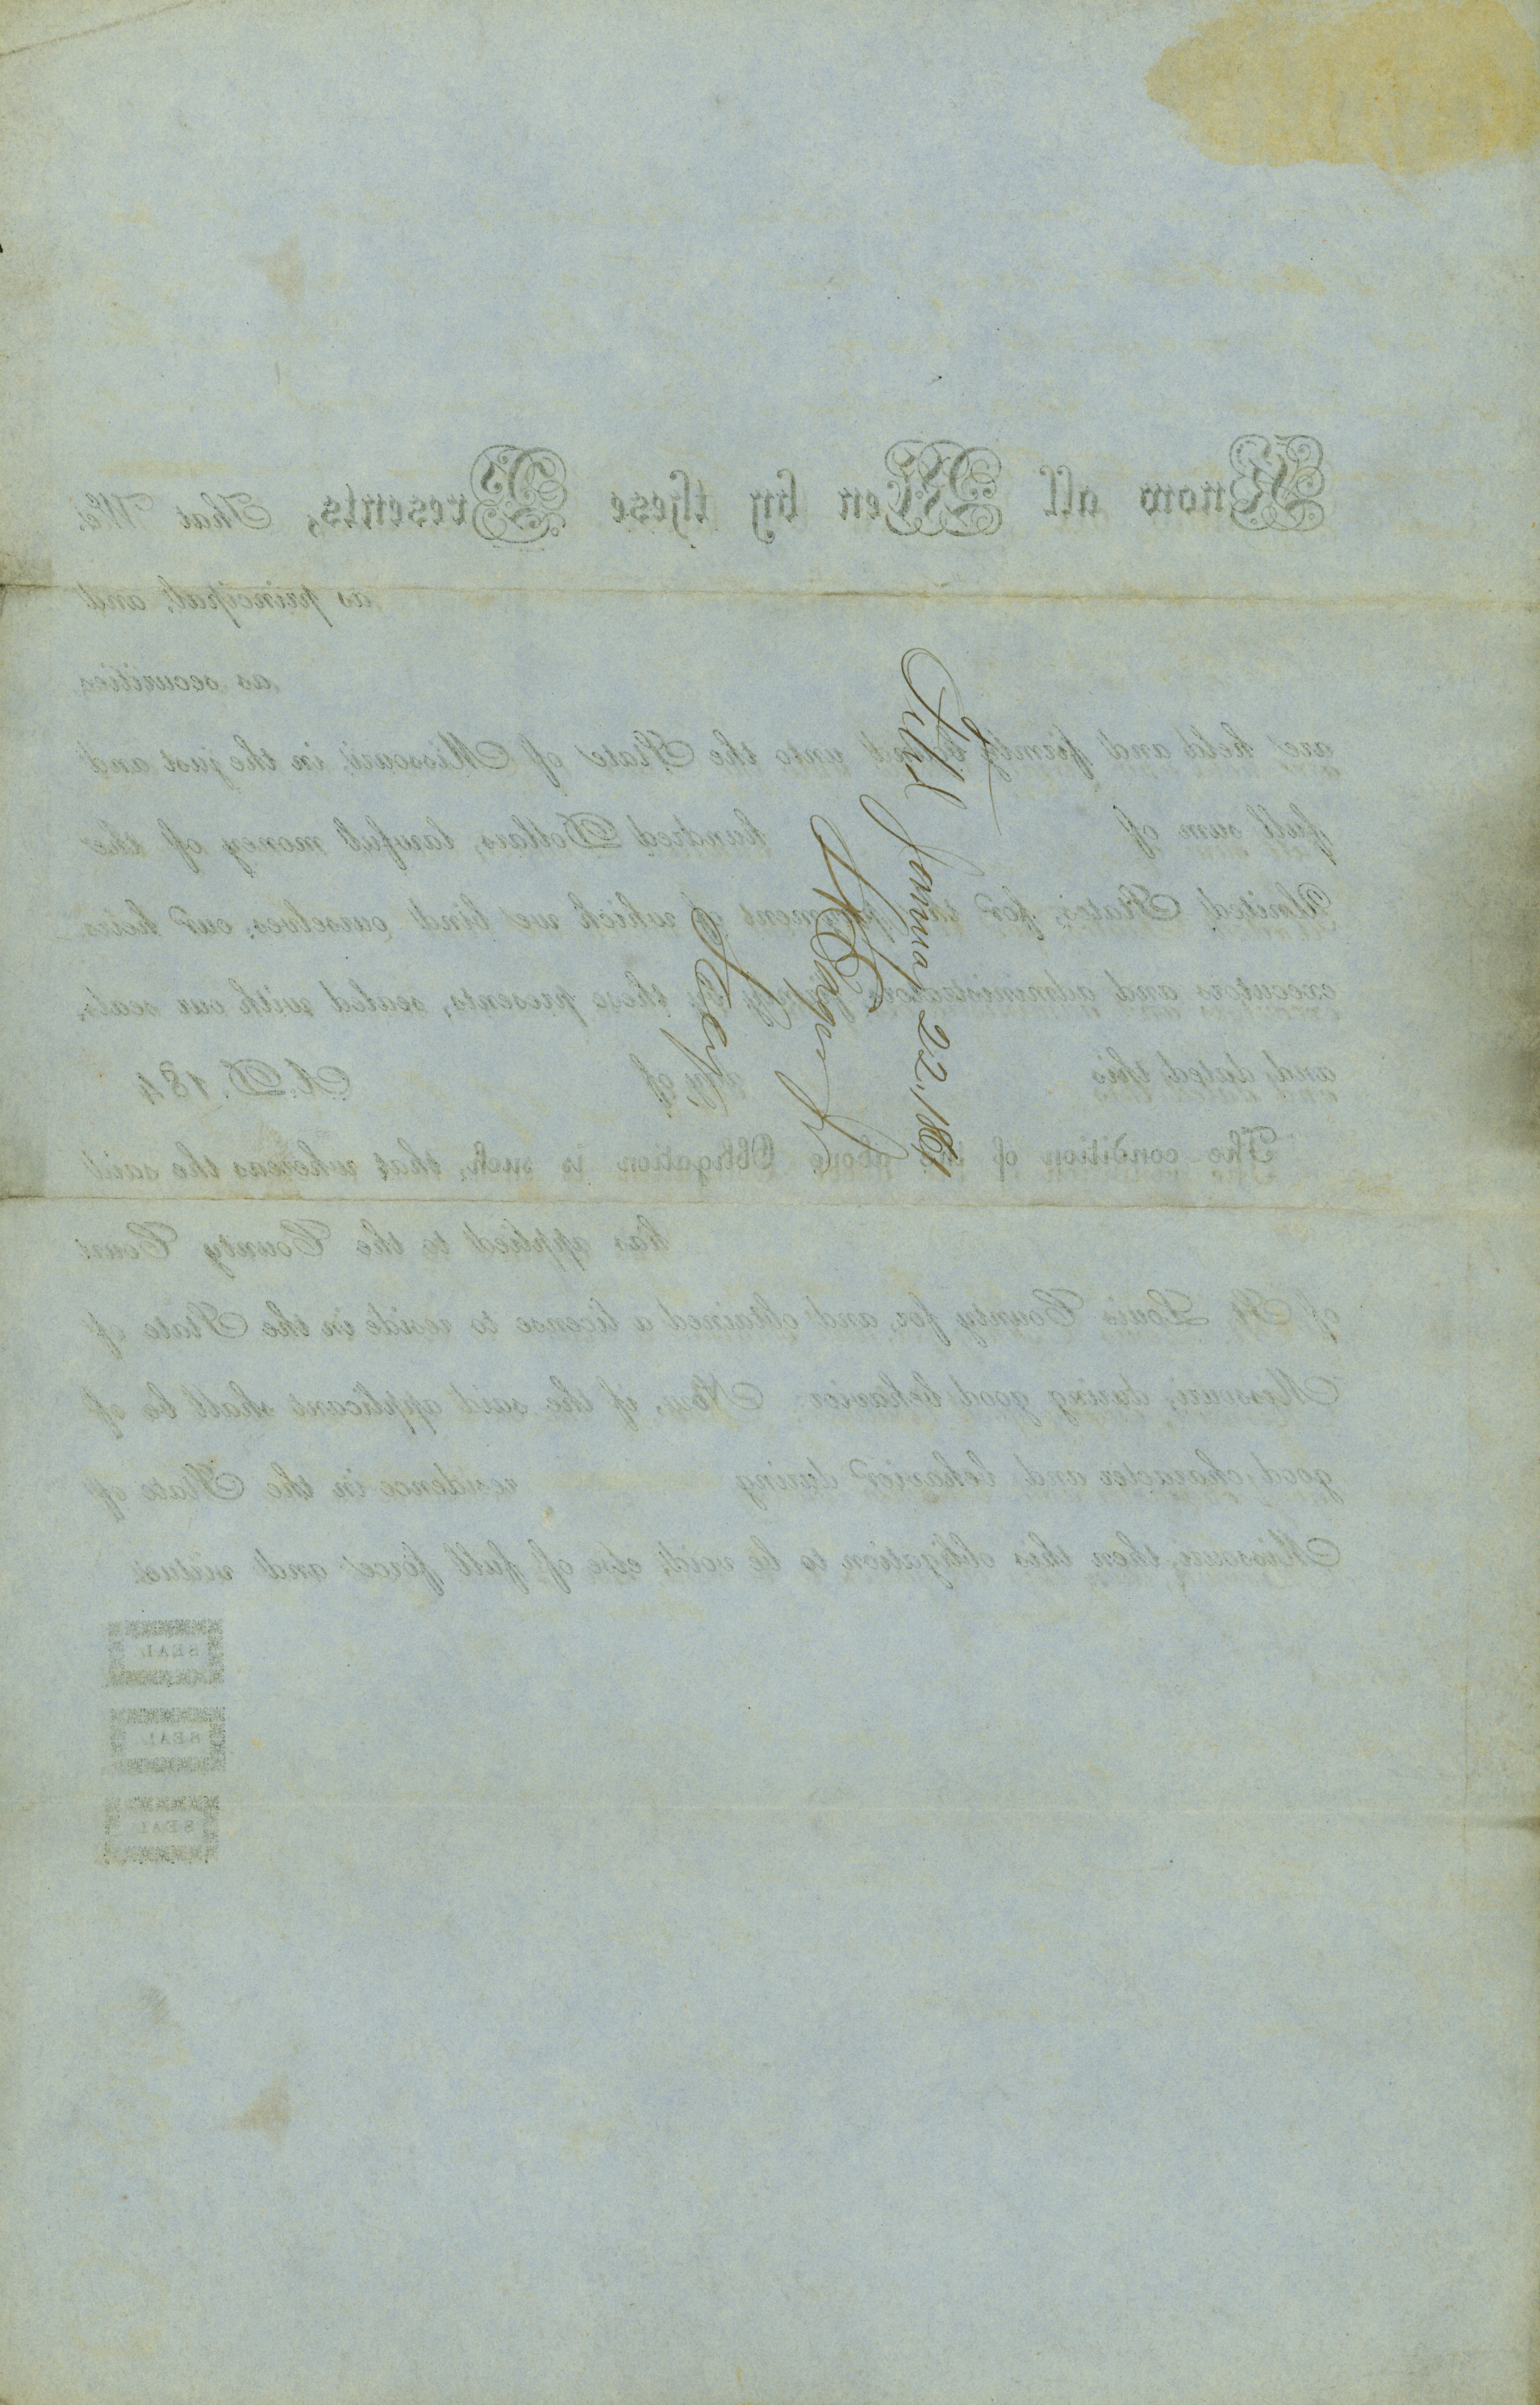 Know all Men by these Presents, That We,
as principal, and
as securities
are held and firmly bound unto the State of Missouri, in the just and
full sum of hundred Dollars, lawful money of the
United States, for the payment of which we bind ourselves, our heirs
executors and administrators, firmly by these presents, sealed with our seals,
and dated this day of A. D. 184
The condition of the above Obligation is such, that whereas the said
has applied to the County Court
of St. Louis County for, and obtained a license to reside in the State of
Missouri, during good behavior: Now, if the said applicant shall be of
good character and behavior during residence in the State of
Missouri, then this obligation to be void, else of full force and virtue.
SEAL
SEAL
SEAL
Filed January 22, 18